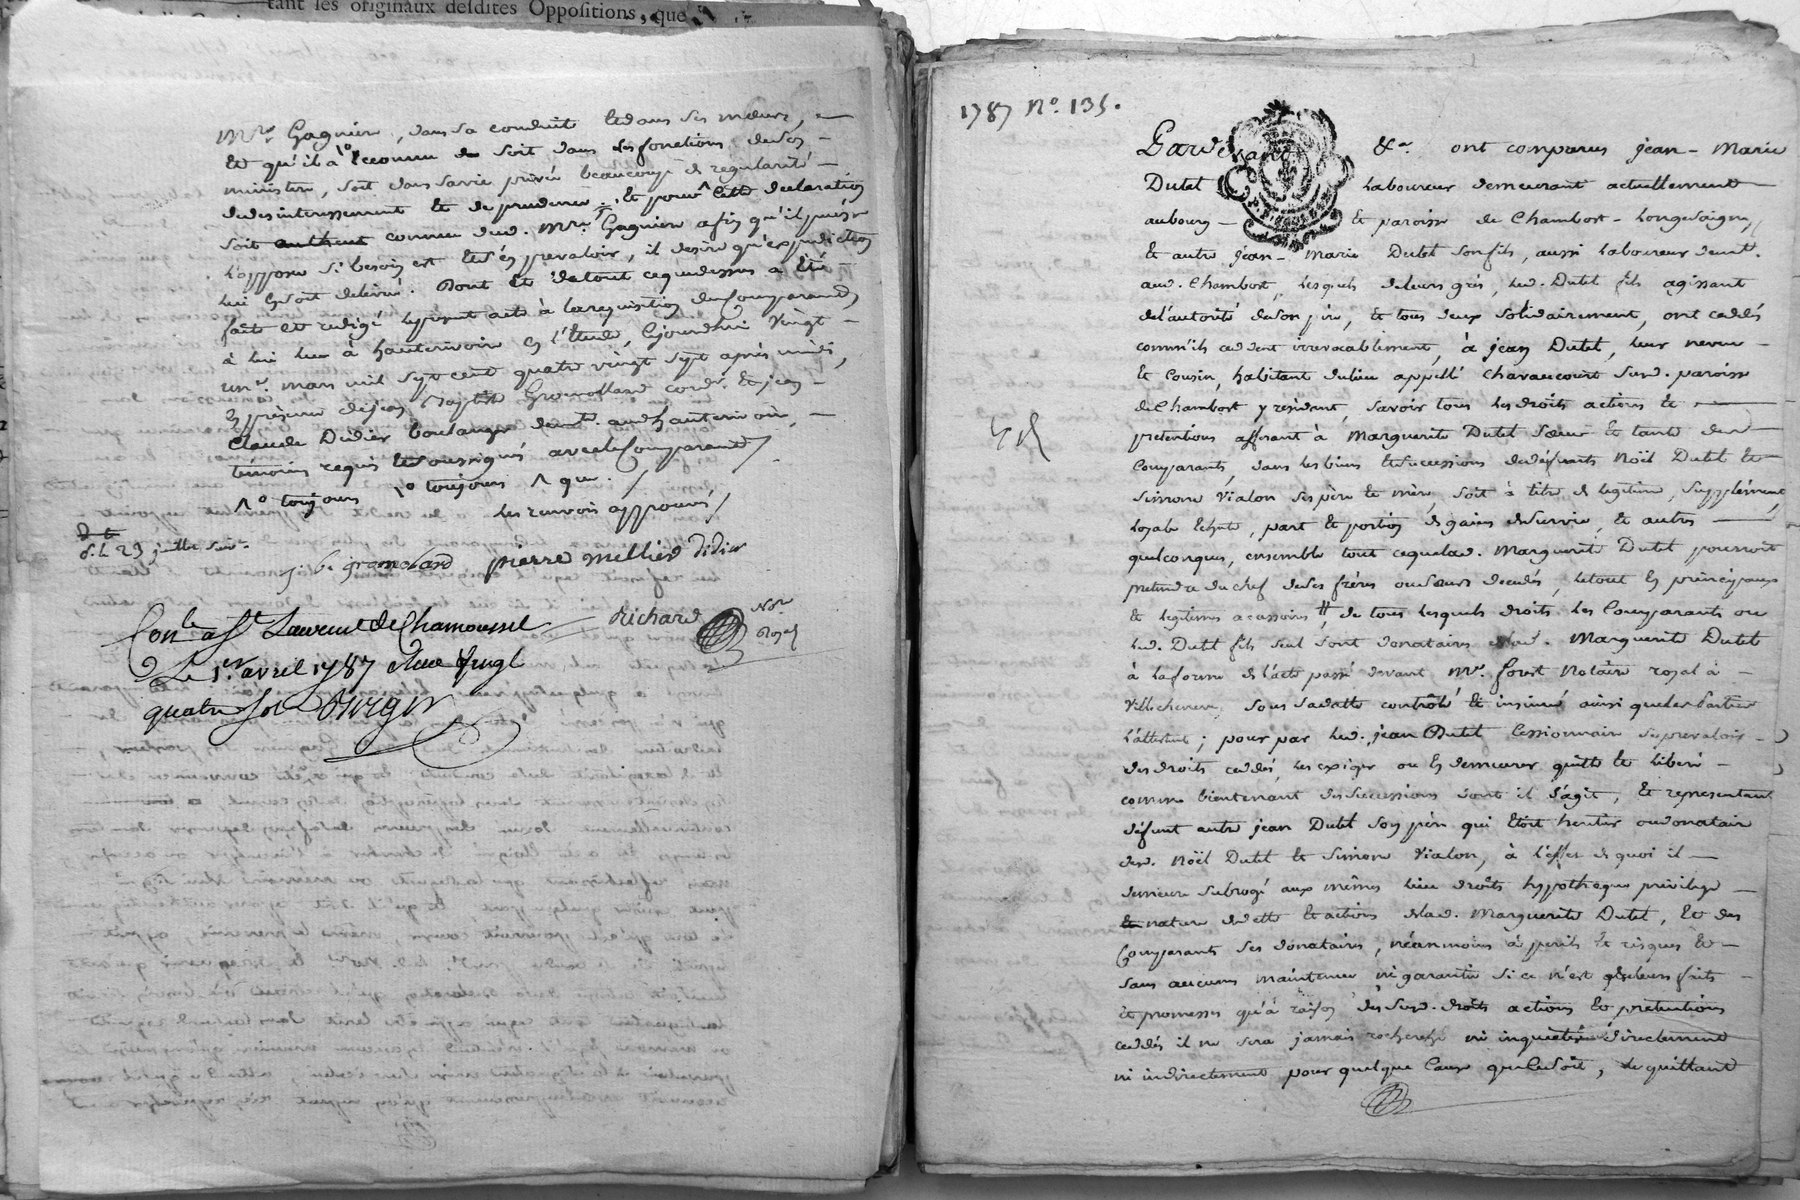 tant les originaux desdites Oppositions, que
Mre. Gagnieu, dans sa conduit et dans ses mœurs,
et qu'il a reconnu de soit dans ses fonctions de son
ministere, soit dans sa vie privée beaucoup de regularité
de desinteressement et de prudence. Et pour que cette declaration
soit connue dud. Mre. Gagnieu afin qu'il puisse
l'apposer si besoin est et s'en prevaloir, il desire qu'expedition
lui en soit delivré. Dont et de tout ce que dessus a été
fait et redigé le present acte à la requisition du Comparant
à lui lu à hauterivoire en l'étude, cejourdhui vingt
un. mars mil sept cent quatre vingt sept après midi,
en présence de jean Baptiste Gromollard cordr. et jean
Claude Didier boulanger demt. aud. hauterivoire,
témoins requis et soussignés avec le Comparant /
1o toujours 1o toujours ^ que. /
les renvois approuvés /
d. le 23 juillet
j. b. gromolard pierre mellier Didier
Richard Nore Royal
Conlé a St. Laurent de Chamousset
Le 1er. avril 1787 Reçu vingt
quatre sols Orsger
1787 No. 135.
Pardevant &a. ont comparus jean-Marie
Dutel laboureur demeurant actuellement
au bourg et paroisse de Chambost-Longesaigne,
et autre jean-Marie Dutel son fils, aussi laboureur demt.
aud. Chambost, lesquels de leurs grés, led. Dutel fils agissant
de l'autorité de son pere, et tous deux solidairement, ont ceddés
comm'ils ceddent irrevocablement, à jean Dutel, leur neveu
et cousin, habitant du lieu appellé Chavaucourt susd. paroisse
de Chambost y residant, savoir tous les droits actions et
pretentions afferant à Marguerite Dutel sœur et tante des
Comparants, dans les biens et successions de défunts Noël Dutel et
Simone Vialon ses père et mère, soit à titre de legitime, supplément,
loyale echute, part et portion de gains de survie, et autres
quelconques, ensemble tout ce que lad. Marguerite Dutel pourroit
pretendre du chef de ses frères ou sœurs decedés, le tout en principaux
et legitimes accessoires, de tous lesquels droits, les Comparants ou
led. Dutel fils seul sont donataires de lad. Marguerite Dutel
à la forme de l'acte passé devant Me. forest Notaire royal à
Villechenève, sous sa datte controlé et insinué ainsi que les parties
l'attestent; pour par led. jean Dutel Cessionnaire se prevaloir
des droits ceddés, les exiger ou en demeurer quitte et liberé
comme bientenant des successions dont il s'agit, et representant
défunt autre jean Dutel son père qui étoit heritier ou donataire
desd. Noël Dutel et Simone Vialon, à l'effet de quoi il
demeure subrogé aux mêmes lieu droits hypotheque privilege
nature de dette et actions de lad. Marguerite Dutel, et des
Comparants ses donataires, néanmoins à ses perils et risques et
sans aucune maintenue ni garantie si ce n'est de leurs faits
et promesses qu'à raison des susd. droits actions et pretentions
ceddés il ne sera jamais recherché ni inquiété directement
ni indirectement pour quelque cause que ce soit, le quittant